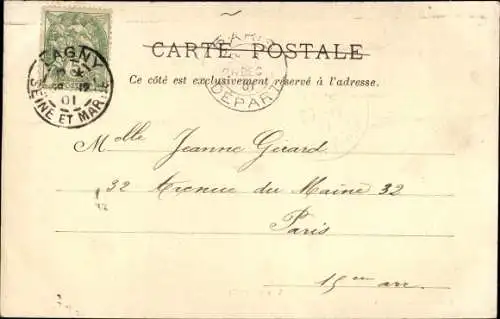 LAGNY
SEINE ET MARNE
01
PARIS
DEC
01
DEPART
CARTE POSTALE
Ce côté est exclusivement réservé à l'adresse.
Melle Jeanne Girard
32 Avenue du Maine 32
Paris
15em arr.